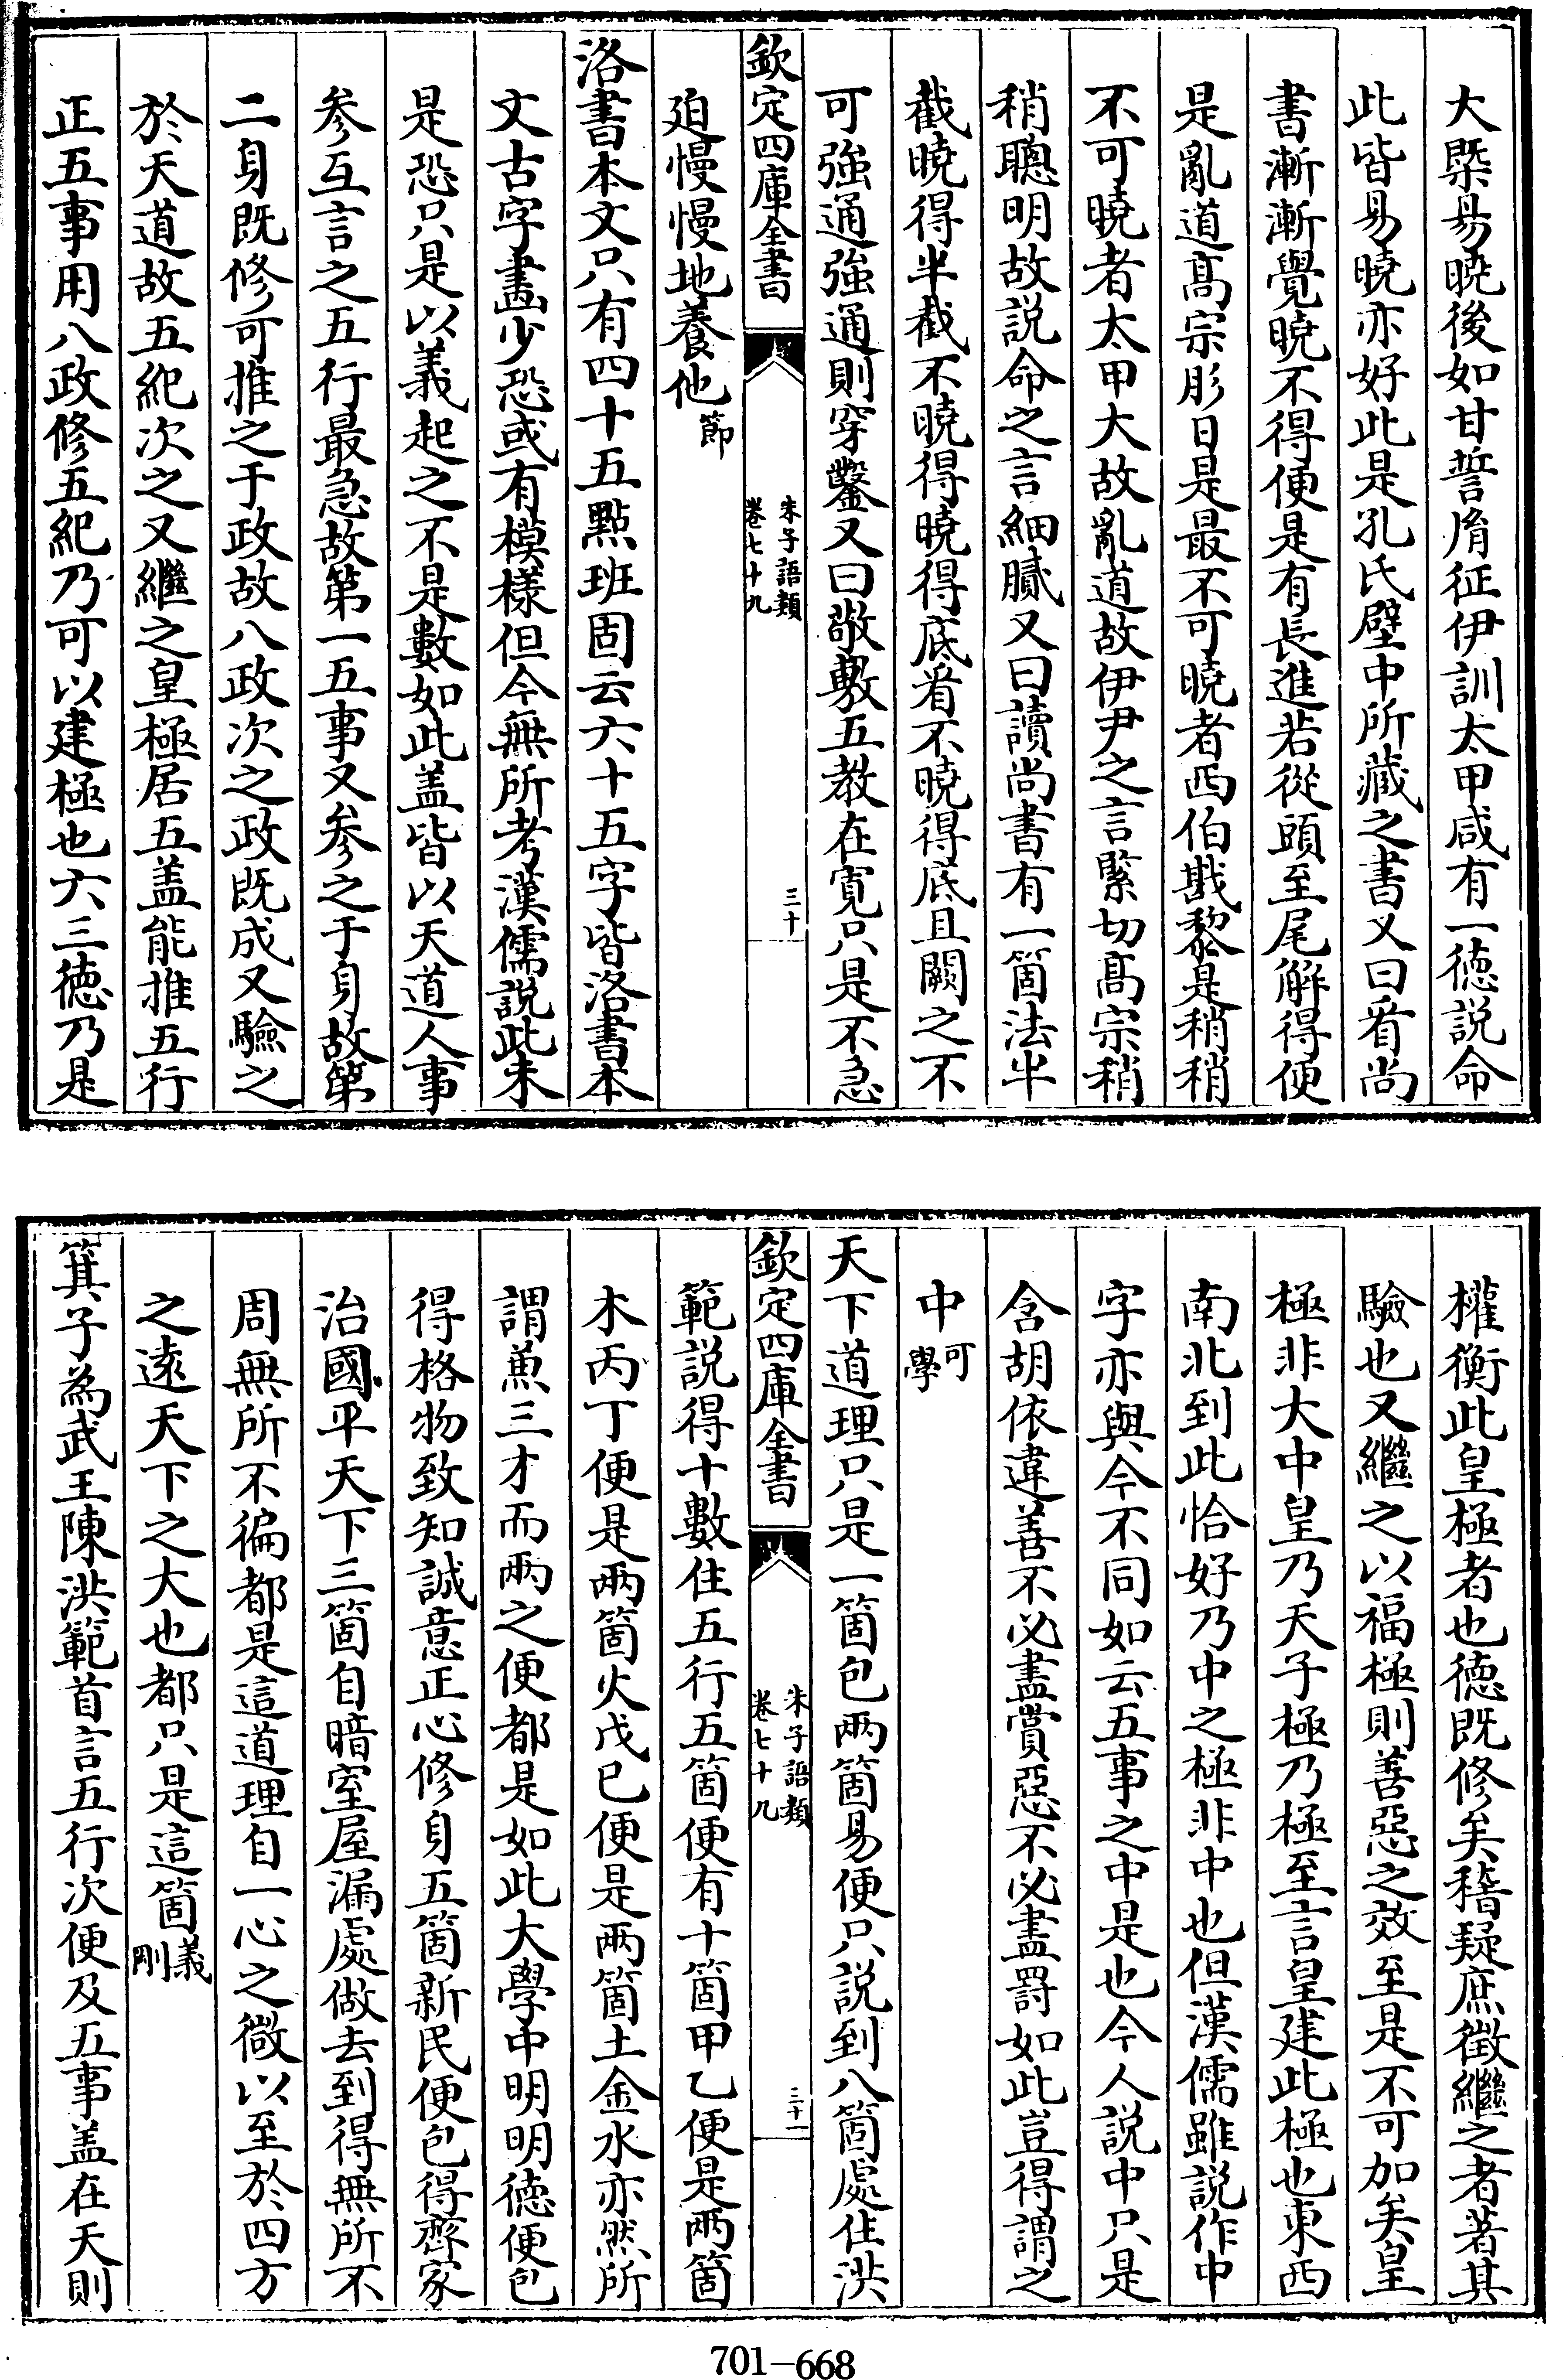 大槩易曉後如甘誓𦙍征伊訓太甲咸有一徳説命
此皆易曉亦好此是孔氏壁中所藏之書又曰㸔尚
書漸漸覺曉不得便是有長進若從頭至尾解得便
是亂道髙宗肜日是最不可曉者西伯戡黎是稍稍
不可曉者太甲大故亂道故伊尹之言緊切髙宗稍
稍聰明故説命之言細膩又曰讀尚書有一箇法半
截曉得半截不曉得曉得底㸔不曉得底且闕之不
可強通強通則穿鑿又曰敬敷五教在寛只是不急
欽定四庫全書
朱子語類
卷七十九
三十
廹慢慢地養他節
洛書本文只有四十五點班固云六十五字皆洛書本
文古字畫少恐或有模様但今無所考漢儒說此未
是恐只是以義起之不是數如此盖皆以天道人事
參互言之五行最急故第一五事又參之于身故第
二身既修可推之于政故八政次之政既成又驗之
於天道故五紀次之又繼之皇極居五盖能推五行
正五事用八政修五紀乃可以建極也六三徳乃是
權衡此皇極者也徳既修矣稽疑庶徵繼之者著其
驗也又繼之以福極則善惡之效至是不可加矣皇
極非大中皇乃天子極乃極至言皇建此極也東西
南北到此恰好乃中之極非中也但漢儒雖説作中
字亦與今不同如云五事之中是也今人説中只是
含胡依違善不必盡賞惡不必盡罰如此豈得謂之
中可學
天下道理只是一箇包兩箇易便只説到八箇處住洪
欽定四庫全書
朱子語類
卷七十九
三十一
範説得十數住五行五箇便有十箇甲乙便是兩箇
木丙丁便是兩箇火戊已便是兩箇土金水亦然所
謂兼三才而兩之便都是如此大學中明明徳便包
得格物致知誠意正心修身五箇新民便包得齊家
治國平天下三箇自暗室屋漏處做去到得無所不
周無所不徧都是這道理自一心之微以至於四方
之遠天下之大也都只是這箇義剛
箕子為武王陳洪範首言五行次便及五事盖在天則
701-668